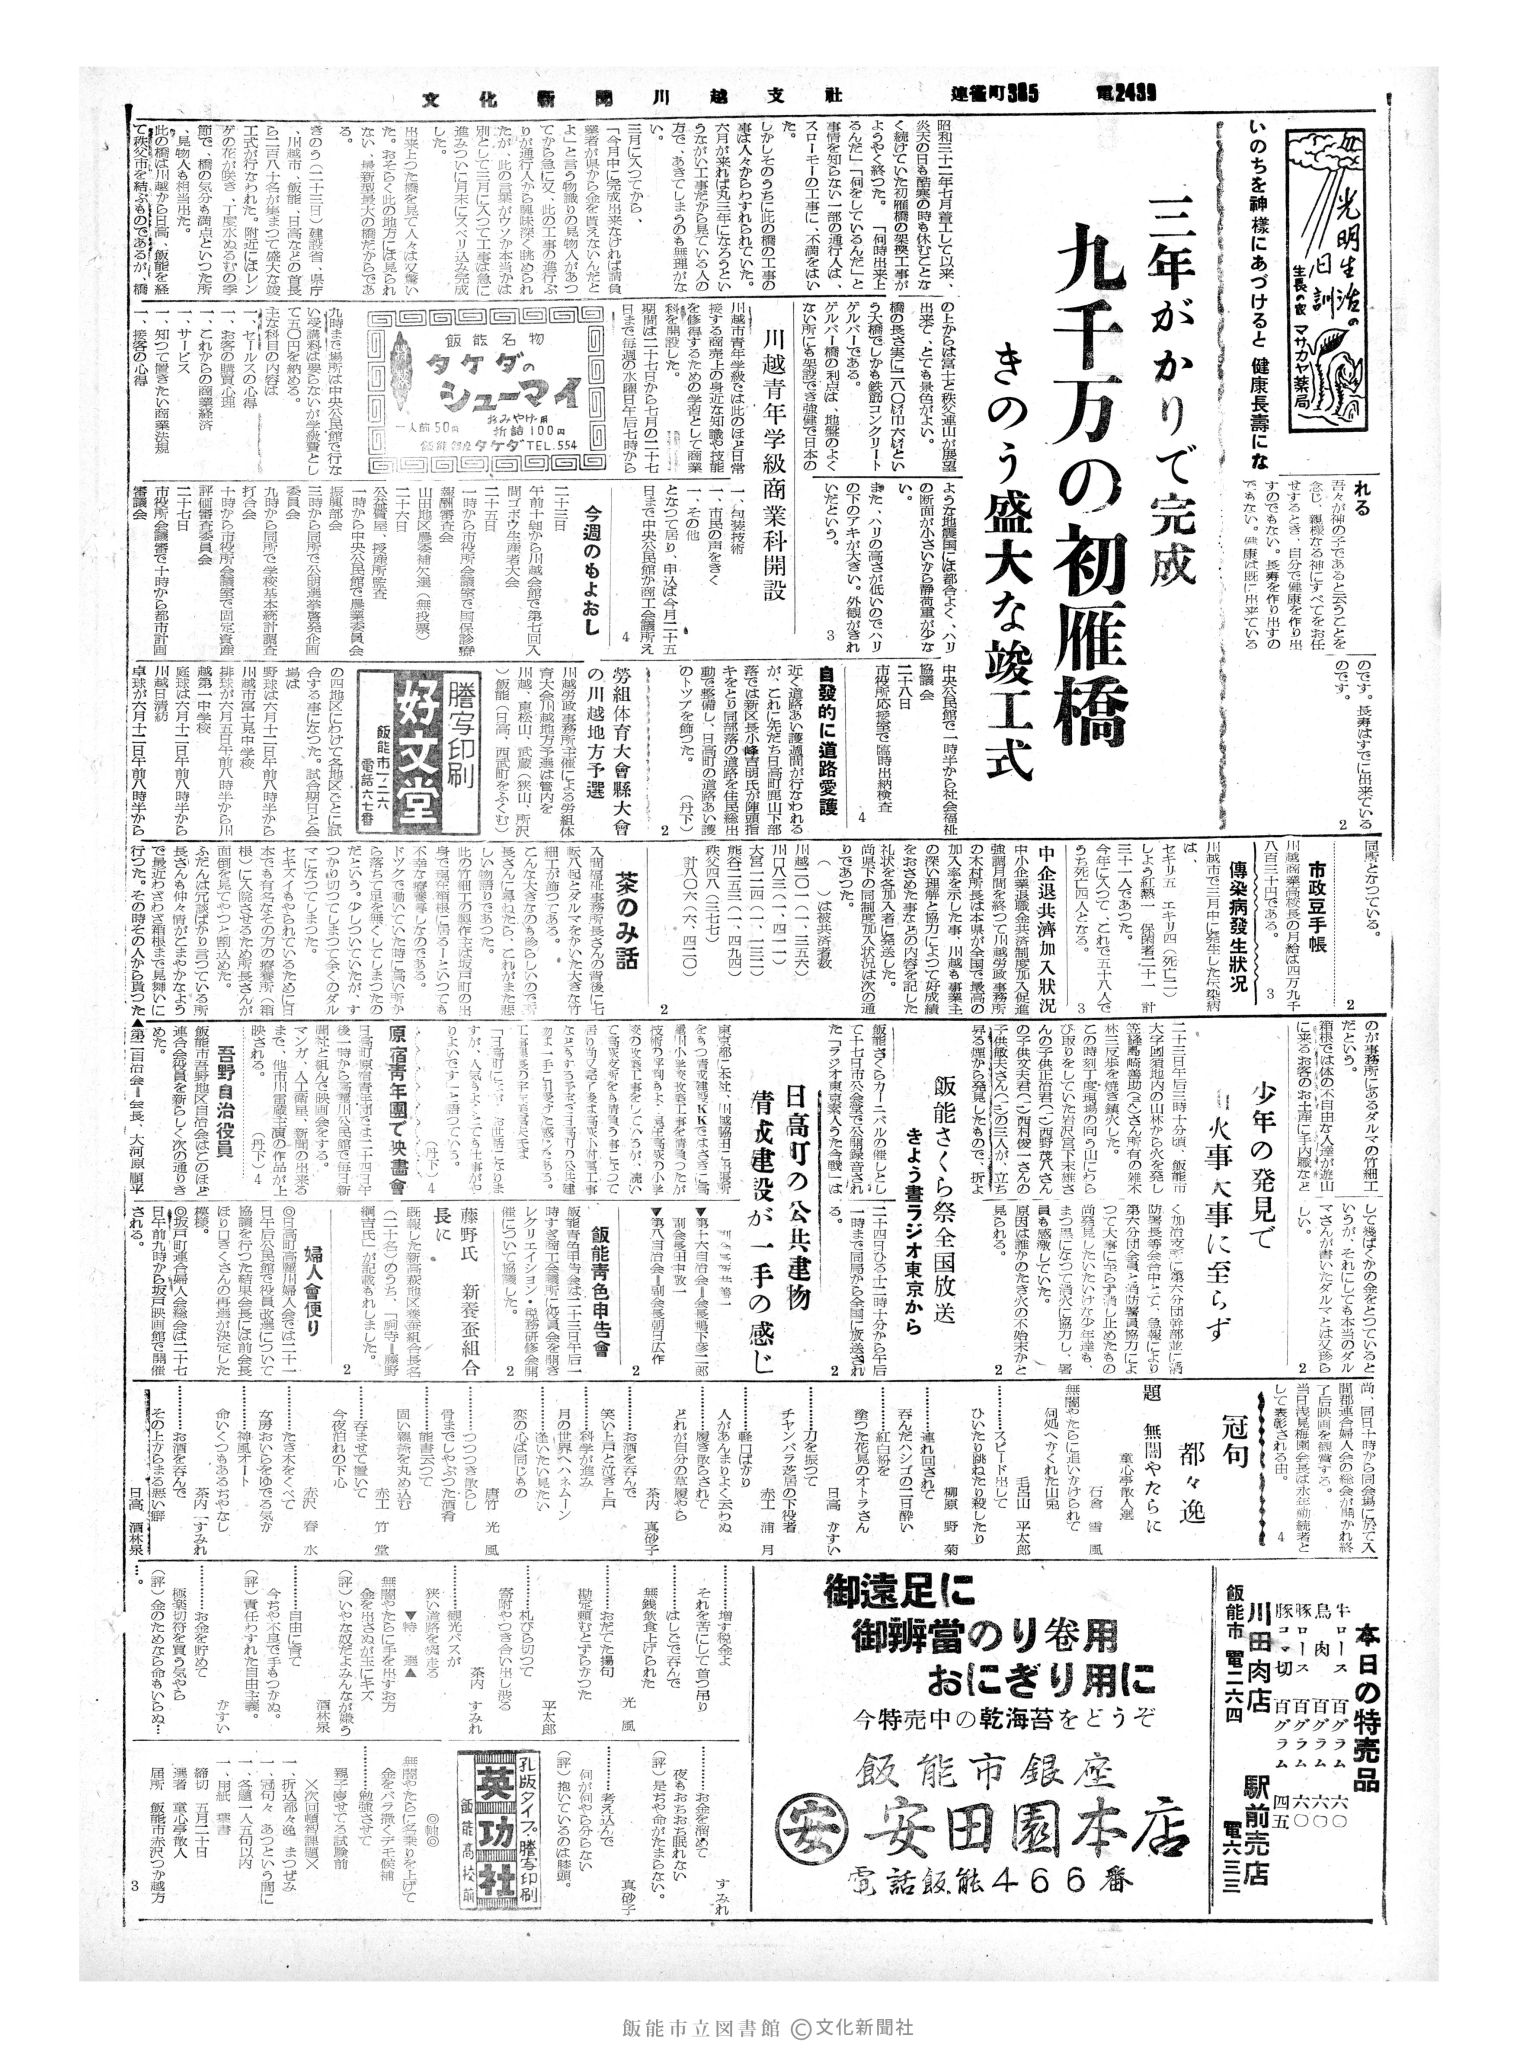 文化新聞川越支社　連雀町385　電2439
光明生活の日訓
生長の家 マサカヤ薬局
いのちを神様にあづけると 健康長壽になれる
吾々が神の子であると云うことを
念じ、親様なる神にすべてをお任
せするとき、自分で健康を作り出
すのでもない。長寿を作り出すの
でもない。健康は既に出来ている
のです。長寿はすでに出来ている
のです。
2
三年がかりで完成
九千万の初雁橋
きのう盛大な竣工式
昭和三十二年七月着工して以来、
炎天の日も酷寒の時も休むことな
く続けていた初雁橋の架換工事が
ようやく終つた。「何時出来上
るんだ」「何をしているんだ」と
事情を知らない一部の通行人は、
スローモーの工事に、不満をはい
た。
しかしそのうちに此の橋の工事の
事は人々からわすれられていた。
六月が来れば丸三年になろうとい
うながい工事だから見ている人の
方で、あきてしまうのも無理がな
い。
三月に入つてから、
「今月中に完成出来なければ請負
業者が県から金を貰えないんだと
よ」と言う物識りの見物人があつ
てから急に又、此の工事の進行ぶ
りが通行人から興味深く眺められ
たが、此の言葉がウソか本当かは
別として三月に入つて工事は急に
進みついに月末にスベリ込み完成
した。
出来上つた橋を見て人々は又驚い
た。おそらく此の地方には見られ
ない、最新型最大の橋だからであ
る。
きのう(二十三日)建設省、県庁
、川越市、飯能、日高などの首長
ら二百八十名が集まつて盛大な竣
工式が行なわれた。附近にはレン
ゲの花が咲き、丁度水ぬるむの季
節で、橋の気分も満点といつた所
、見物人も相当出た。
此の橋は川越から日高、飯能を経
て秩父市を結ぶものであるが、橋
の上からは富士と秩父連山が展望
出来て、とても景色がよい。
橋の長さ実に二八〇㍍巾六㍍とい
う大橋でしかも鉄筋コンクリート
ゲルバーである。
ゲルバー橋の利点は、地盤のよく
ない所にも架設でき強健で日本の
ような地震国には都合よく、ハリ
の断面が小さいから静荷重が少な
い。
また、ハリの高さが低いのでハリ
の下のアキが大きい。外観がきれ
いだという。
3
川越青年学級商業科開設
川越市青年学級では此のほど日常
接する商売上の身近な知識や技能
を修得するための学習として商業
科を開設した。
期間は二十七日から七月の二十七
日まで毎週の水曜日午后七時から
九時まで場所は中央公民館で行な
い受講料は要らないが学級費とし
て五〇円を納める。
主な科目の内容は
一、セールスの心得
一、お客の購買心理
一、これからの商業経済
一、サービス
一、知つて置きたい商業法規
一、接客の心得
一、包装技術
一、市民の声をきく
一、その他
となつて居り、申込は今月二十五
日まで中央公民館か商工会議所え
4
飯能名物
タケダの
シューマイ
一人前50円 おみやげ用折詰100円
飯能銀座 タケダ TEL.554
今週のもよおし
二十三日
午前十時から川越会館で第七回入
間ゴボウ生産者大会
二十五日
一時から市役所会議室で国保診療
報酬審査会
山田地区農委補欠選(無投票)
二十六日
公益質屋、授産所監査
一時から中央公民館で農業委員会
振興部会
三時から同所で公明選挙啓発企画
委員会
九時から同所で学校基本統計調査
打合会
十時から市役所会議室で固定資産
評価審査委員会
二十七日
市役所会議室で十時から都市計画
審議会
中央公民館で一時半から社会福祉
協議会
二十八日
市役所応接室で臨時出納検査
4
自發的に道路愛護
近く道路あい護週間が行なわれる
が、これに先だち日高町鹿山下部
落では新区長小峰吉明氏が陣頭指
キをとり同部落の道路を住民総出
動で整備し、日高町の道路あい護
のトップを飾つた。(丹下)
2
勞組体育大會縣大會
の川越地方予選
川越労政事務所主催による労組体
育大会川越地方予選は管内を
川越、東松山、武蔵(狭山、所沢
)飯能(日高、西武町をふくむ)
の四地区にわけて各地区ごとに試
合する事になつた。試合期日と会
場は
野球は六月十二日午前八時半から
川越市富士見中学校
排球が六月五日午前八時半から川
越第一中学校
庭球は六月十二日午前八時半から
川越日清紡
卓球が六月十二日午前八時半から
同所となつている。
2
謄写印刷
好文堂
飯能市一ノ二六
電話六七番
市政豆手帳
川越商業高校長の月給は四万九千
八百三十円である。
3
傳染病發生狀况
川越市で三月中に発生した伝染病
は、
セキリ五　エキリ四(死亡二)
しよう紅熱一　保菌者二十一　計
三十一人であつた。
今年に入つて、これで五十八人で
うち死亡四人となる。
3
中企退共濟加入狀况
中小企業退職金共済制度加入促進
強調月間を終つて川越労政事務所
の木村所長は本県が全国で最高の
加入率を示した事、川越も事業主
の深い理解と協力によつて好成績
をおさめた事などの内容を記した
礼状を各加入者に発送した。
尚県下の同制度加入状況は次の通
りであつた。
(　)は被共済者数
川越二〇一(一、三五六)
川口八三(一、四一一)
大宮一二四(一、一三二)
熊谷二五三(一、四九四)
秩父四八(三七七)
計八〇六(六、四二〇)
2
茶のみ話
入間福祉事務所長さんの背後に七
転八起とダルマをかいた大きな竹
細工が飾つてある。
こんな大きなのも珍らしいので所
長さんに尋ねたら、これがまた悲
しい物語りであつた。
此の竹細工の製作主は坂戸町の出
身で現在箱根に居る―といつても
不幸な療養暮しなのである。
ドックで働いていた時に高い所か
ら落ちて足を無くしてしまつたの
だという。少しついていたが、す
つかり切つてしまつて全くのダル
マになつてしまつた。
セキズイもやられているために日
本でも有名なその方の療養所(箱
根)に入院させるため所長さんが
面倒を見てやつと割込めた。
ふだんは冗談ばかり言つている所
長さんも仲々情がこまやかなよう
で最近わざわざ箱根まで見舞いに
行つた。その時その人から貰つた
のが事務所にあるダルマの竹細工
だという。
箱根では体の不自由な人達が遊山
に来るお客のお土産に手内職など
して幾ばくかの金をとつていると
いうが、それにしても本当のダル
マさんが書いたダルマとは又珍ら
しい。
2
少年の発見で
山火事大事に至らず
二十三日午后三時十分頃、飯能市
大字岡須地内の山林から火を発し
林三反歩を焼き鎮火した。
この時刻丁度現場の向う山にわら
び取りをしていた岩沢宮下末雄さ
んの子供丈夫君(一)西村俊一さんの
く加治支部に第六分団幹部並に消
防署長等会合中とて、急報により
第六分団全員と消防署員協力によ
つて大事に至らず消し止めたもの
尚発見したいたいけな少年達も、
まつ黒になつて消火に協力し、署
員も感激していた。
原因は誰かのたき火の不始末かと
見られる。
2
飯能さくら祭全国放送
きよう晝ラジオ東京から
飯能さくらカーニバルの催しとし
て十七日市公会堂で公開録音され
た「ラジオ東京素人うた合戦」は
二十四日ひる十二時十分から午后
一時まで同局から全国に放送され
る。
2
日高町の公共建物
清成建設が一手の感じ
原宿青年團で映畫會
日高町原宿青年団では二十四日午
後一時から高麗川公民館で毎日新
聞社と組んで映画会をする。
マンガ、人工衛星、新聞の出来る
まで、他市川雷蔵主演の作品が上
映される。(丹下)4
吾野自治役員
飯能市吾野地区自治会はこのほど
連合会役員を新らしく次の通りき
めた。
▲第一自治会=会長、大河原順平
▼第八自治会=副会長朝日広作
2
飯能青色申告會
飯能青色申告会は二十三日午后一
時すぎ商工会議所に役員会を開き
レクリエイション・税務研修会開
催について協議した。
2
藤野氏　新養蚕組合長に
既報した新高萩地区養蚕組合長名
(二十名)のうち、「駒寺=藤野
綱吉氏」が記載もれしました。
2
婦人會便り
◎日高町高麗川婦人会では二十一
日午后公民館で役員改選について
協議を行つた結果会長には前会長
ほり口ぎくさんの再選が決定した
模様。
◎坂戸町連合婦人会総会は二十七
日午前九時から坂戸映画館で開催
される。
尚、同日十時から同会場に於て入
間郡連合婦人会の総会が開かれ終
了后映画を観賞する。
当日浅見梅園会長は永年勤続者と
して表彰される由。
4
冠句
都々逸
題　無闇やたらに
童心亭散人選
無闇やたらに追いかけられて
何処へかくれた山兎
石倉　雪風
……スピード出して
ひいたり跳ねたり殺したり
毛呂山　平太郎
……連れ回されて
呑んだハシゴの二日酔い
柳原　野菊
……紅白粉を
塗つた花見のオトラさん
日高　かすい
……力を振つて
チャンバラ芝居の下役者
赤工　浦月
……軽口ばかり
人があんまりよく云わぬ
……履き散らされて
どれが自分の草履やら
茶内　真砂子
……お酒を呑んで
笑い上戸と泣き上戸
……科学が進み
月の世界へハネムーン
……逢いたい見たい
恋の心は同じもの
唐竹　光風
……つつつき散らし
骨までしやぶつた酒肴
……能書云つて
固い親爺を丸め込む
赤工　竹堂
……呑ませて置いて
今夜泊れの下心
……たき木をくべて
女房おいらをゆでる気か
赤沢　春水
……神風オート
命いくつもあるぢやなし
茶内　すみれ
……お酒を呑んで
その上からまる悪い癖
日高　酒林泉
……増す税金よ
それを苦にして首つ吊り
……はしごで呑んで
無銭飲食上げられた
光風
……おだてた揚句
勘定頼むとずらかつた
平太郎
……札びら切つて
寄附やつき合い出し渋る
茶内　すみれ
……観光バスが
狭い道路を飛走る
▼特　選▲
無闇やたらに手を出すお方
金を出さぬが玉にキズ
(評)いやな奴だよみんなが嫌う
酒林泉
……自由に育て
今ぢや不良で手もつかぬ。
(評)責任わすれた自由主義。
かすい
……お金を貯めて
極楽切符を買う気やら
(評)金のためなら命もいらぬ…
……お金を溜めて
夜もおちおち眠れない
(評)是ぢや命がたまらない。
すみれ
……考え込んで
何が何やら分らない
(評)抱いているのは膝頭。
真砂子
◎軸◎
無闇やたらに名乗りを上げて
金をバラ撒くデモ候補
……勉強させて
親子痩せてる試験前
×次回頓智課題×
一、折込都々逸　まつぜみ
一、冠句々　あつという間に
一、各題一人五句以内
一、用紙　葉書
締切　五月二十日
選者　童心亭散人
届所　飯能市赤沢つか越方
3
孔版タイプ。謄写印刷
英功社
飯能高校前
御遠足に
御辨當のり巻用
おにぎり用に
今特売中の乾海苔をどうぞ
飯能市銀座
安 安田園本店
電話飯能466番
本日の特売品
牛ロース　百グラム　六〇
鳥肉　百グラム　六〇
豚ロース　百グラム　六〇
豚コマ切　百グラム　四五
川田肉店　駅前売店
飯能市　電二六四　電六三三
飯能市立図書館 ©文化新聞社